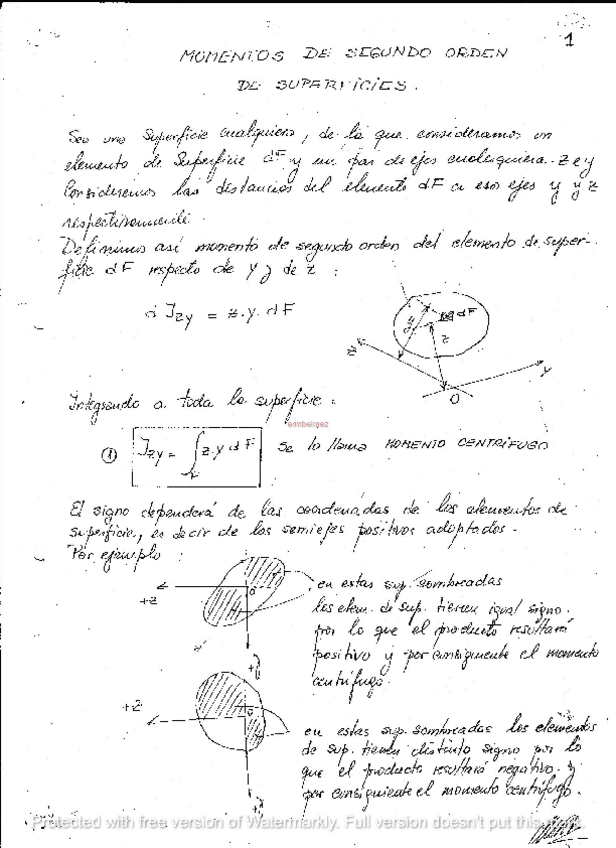 1
MOMENTOS DE SEGUNDO ORDEN
DE SUPERFICIES.
Sea una Superficie cualquiera, de la que consideramos un
elemento de Superficie dF y un par de ejes cualesquiera z e y
Consideremos las distancias del elemento dF a esos ejes y y z
respectivamente.
Definimos así momento de segundo orden del elemento de super-
ficie dF respecto de y y de z :
d Jzy = z.y.dF
dF
y
z
z
y
O
Integrando a toda la superficie :
embeimez
① Jzy = ∫F z.y dF Se lo llama MOMENTO CENTRÍFUGO
El signo dependerá de las coordenadas de los elementos de
superficie, es decir de los semiejes positivos adoptados.
Por ejemplo :
+z
o
+y
en estas sup. sombreadas
los elem. de sup. tienen igual signo.
por lo que el producto resultará
positivo y por consiguiente el momento
centrífugo.
+z
o
+y
en estas sup. sombreadas los elementos
de sup. tienen distinto signo por lo
que el producto resultará negativo y
por consiguiente el momento centrífugo.
Protected with free version of Watermarkly. Full version doesn't put this mark.